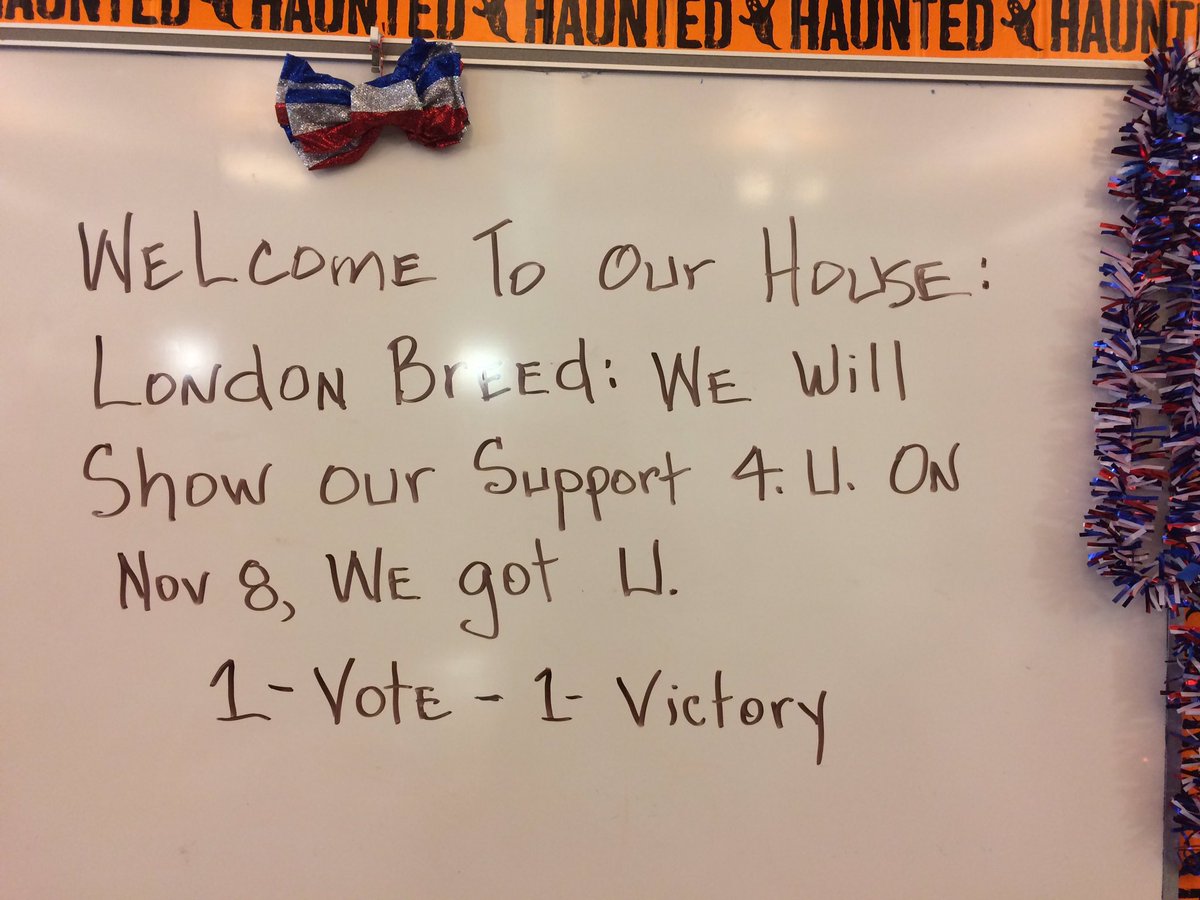 HAUNTED HAUNTED HAUNTED HAUNTED HAUNT
WELCOME To Our HOUSE:
LONdON BrEEd: WE Will
Show our Support 4. U. ON
Nov 8, WE got U.
1 - VotE - 1 - Victory